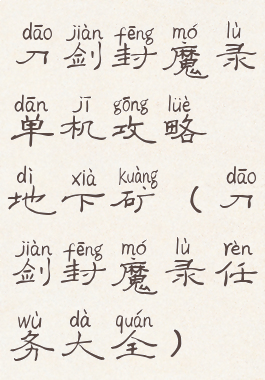 dāo jiàn fēng mó lù
刀剑封魔录
dān jī gōng lüè
单机攻略
dì xià kuàng dāo
地下矿（刀
jiàn fēng mó lù rèn
剑封魔录任
wù dà quán
务大全）